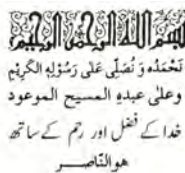 بسم الله الرحمن الرحيم
نحمده و نصلى على رسوله الكريم
وعلى عبده المسيح الموعود
خدا کے فضل اور رحم کے ساتھ
هوالنّاصر